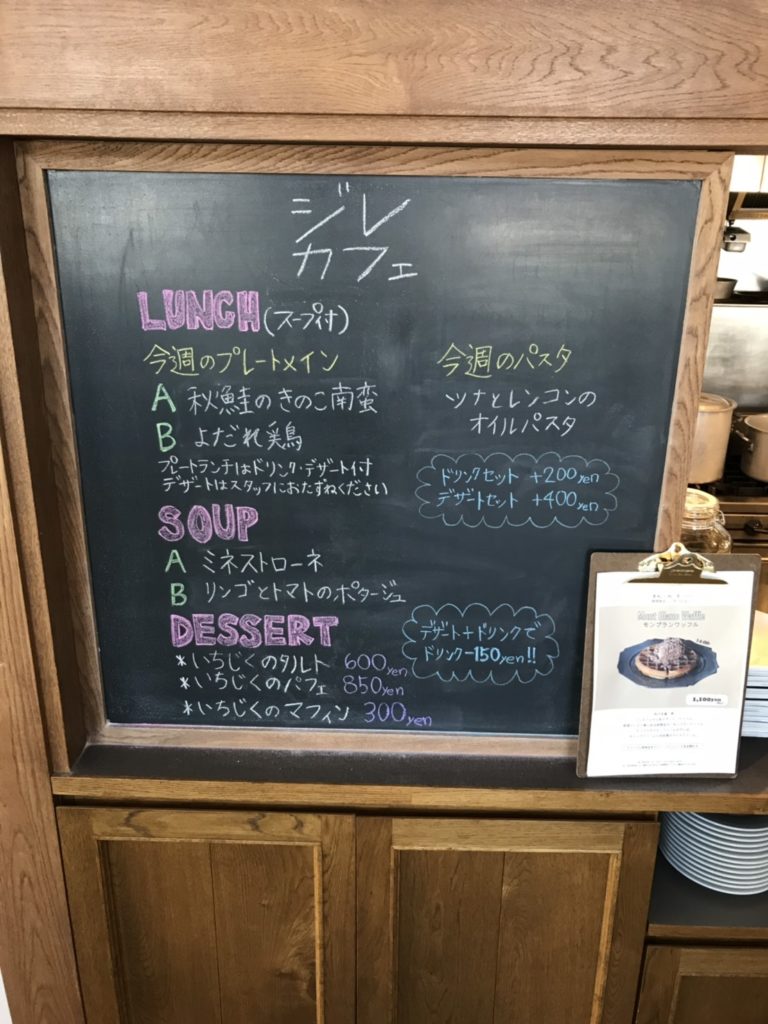 ジレ
カフェ
LUNCH(スープ付)
今週のプレートメイン
A 秋鮭のきのこ南蛮
B よだれ鶏
プレートランチはドリンク・デザート付
デザートはスタッフにおたずねください
今週のパスタ
ツナとレンコンの
オイルパスタ
ドリンクセット +200yen
デザートセット +400yen
SOUP
A ミネストローネ
B リンゴとトマトのポタージュ
DESSERT
*いちじくのタルト 600yen
*いちじくのパフェ 850yen
*いちじくのマフィン 300yen
デザート+ドリンクで
ドリンクー150yen!!
Mont Blanc Waffle
モンブランワッフル